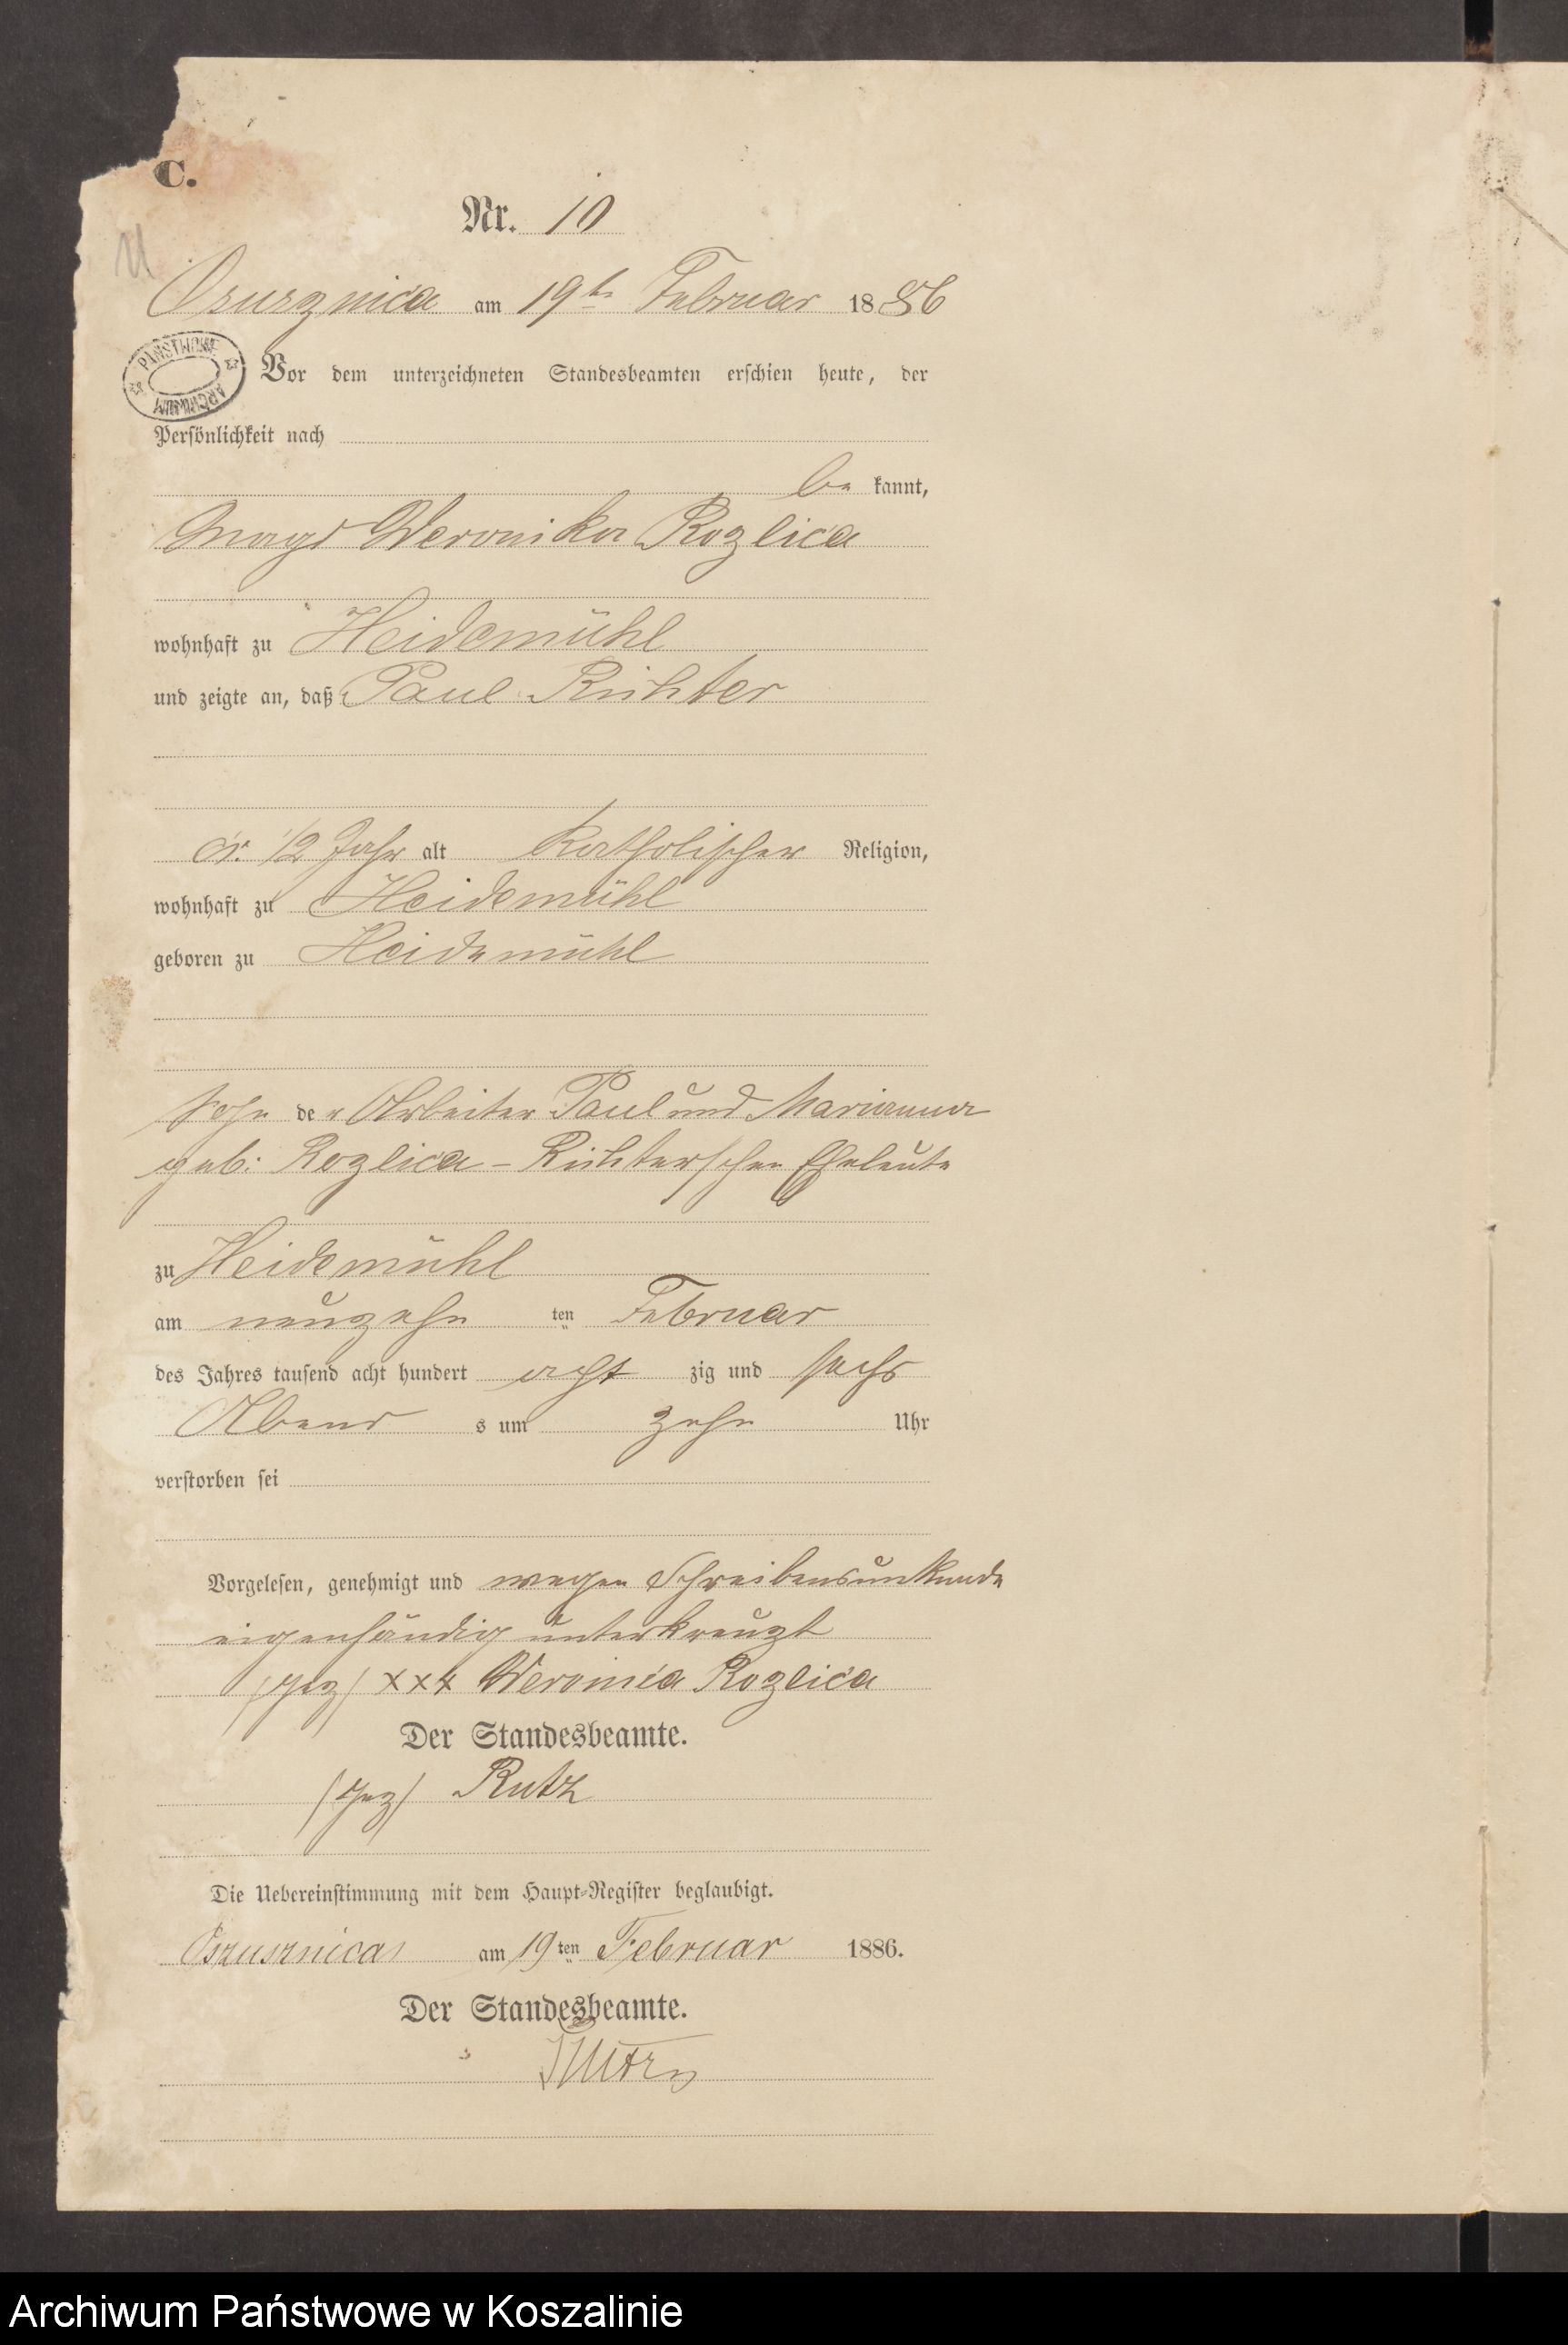 C.
Nr. 10
Osusznica am 19t Februar 1886
PAŃSTWOWE ARCHIWUM
Vor dem unterzeichneten Standesbeamten erschien heute, der
Persönlichkeit nach
be kannt,
Magd Weronika Rozlica
wohnhaft zu Heidemühl
und zeigte an, daß Paul Richter
cr. 1/2 Jahr alt katholischer Religion,
wohnhaft zu Heidemühl
geboren zu Heidemühl
Sohn der Arbeiter Paul und Marianna
geb: Rozlica - Richterschen Eheleute
zu Heidemühl
am neunzehn ten Februar
des Jahres tausend acht hundert acht zig und sechs
Abend s um zehn Uhr
verstorben sei
Vorgelesen, genehmigt und wegen Schreibensunkunde
eigenhändig unterkreuzt
(gez) xxx Weronica Rozlica
Der Standesbeamte.
(gez) Rutz
Die Uebereinstimmung mit dem Haupt-Register beglaubigt.
Osusznica am 19ten Februar 1886.
Der Standesbeamte.
Archiwum Państwowe w Koszalinie